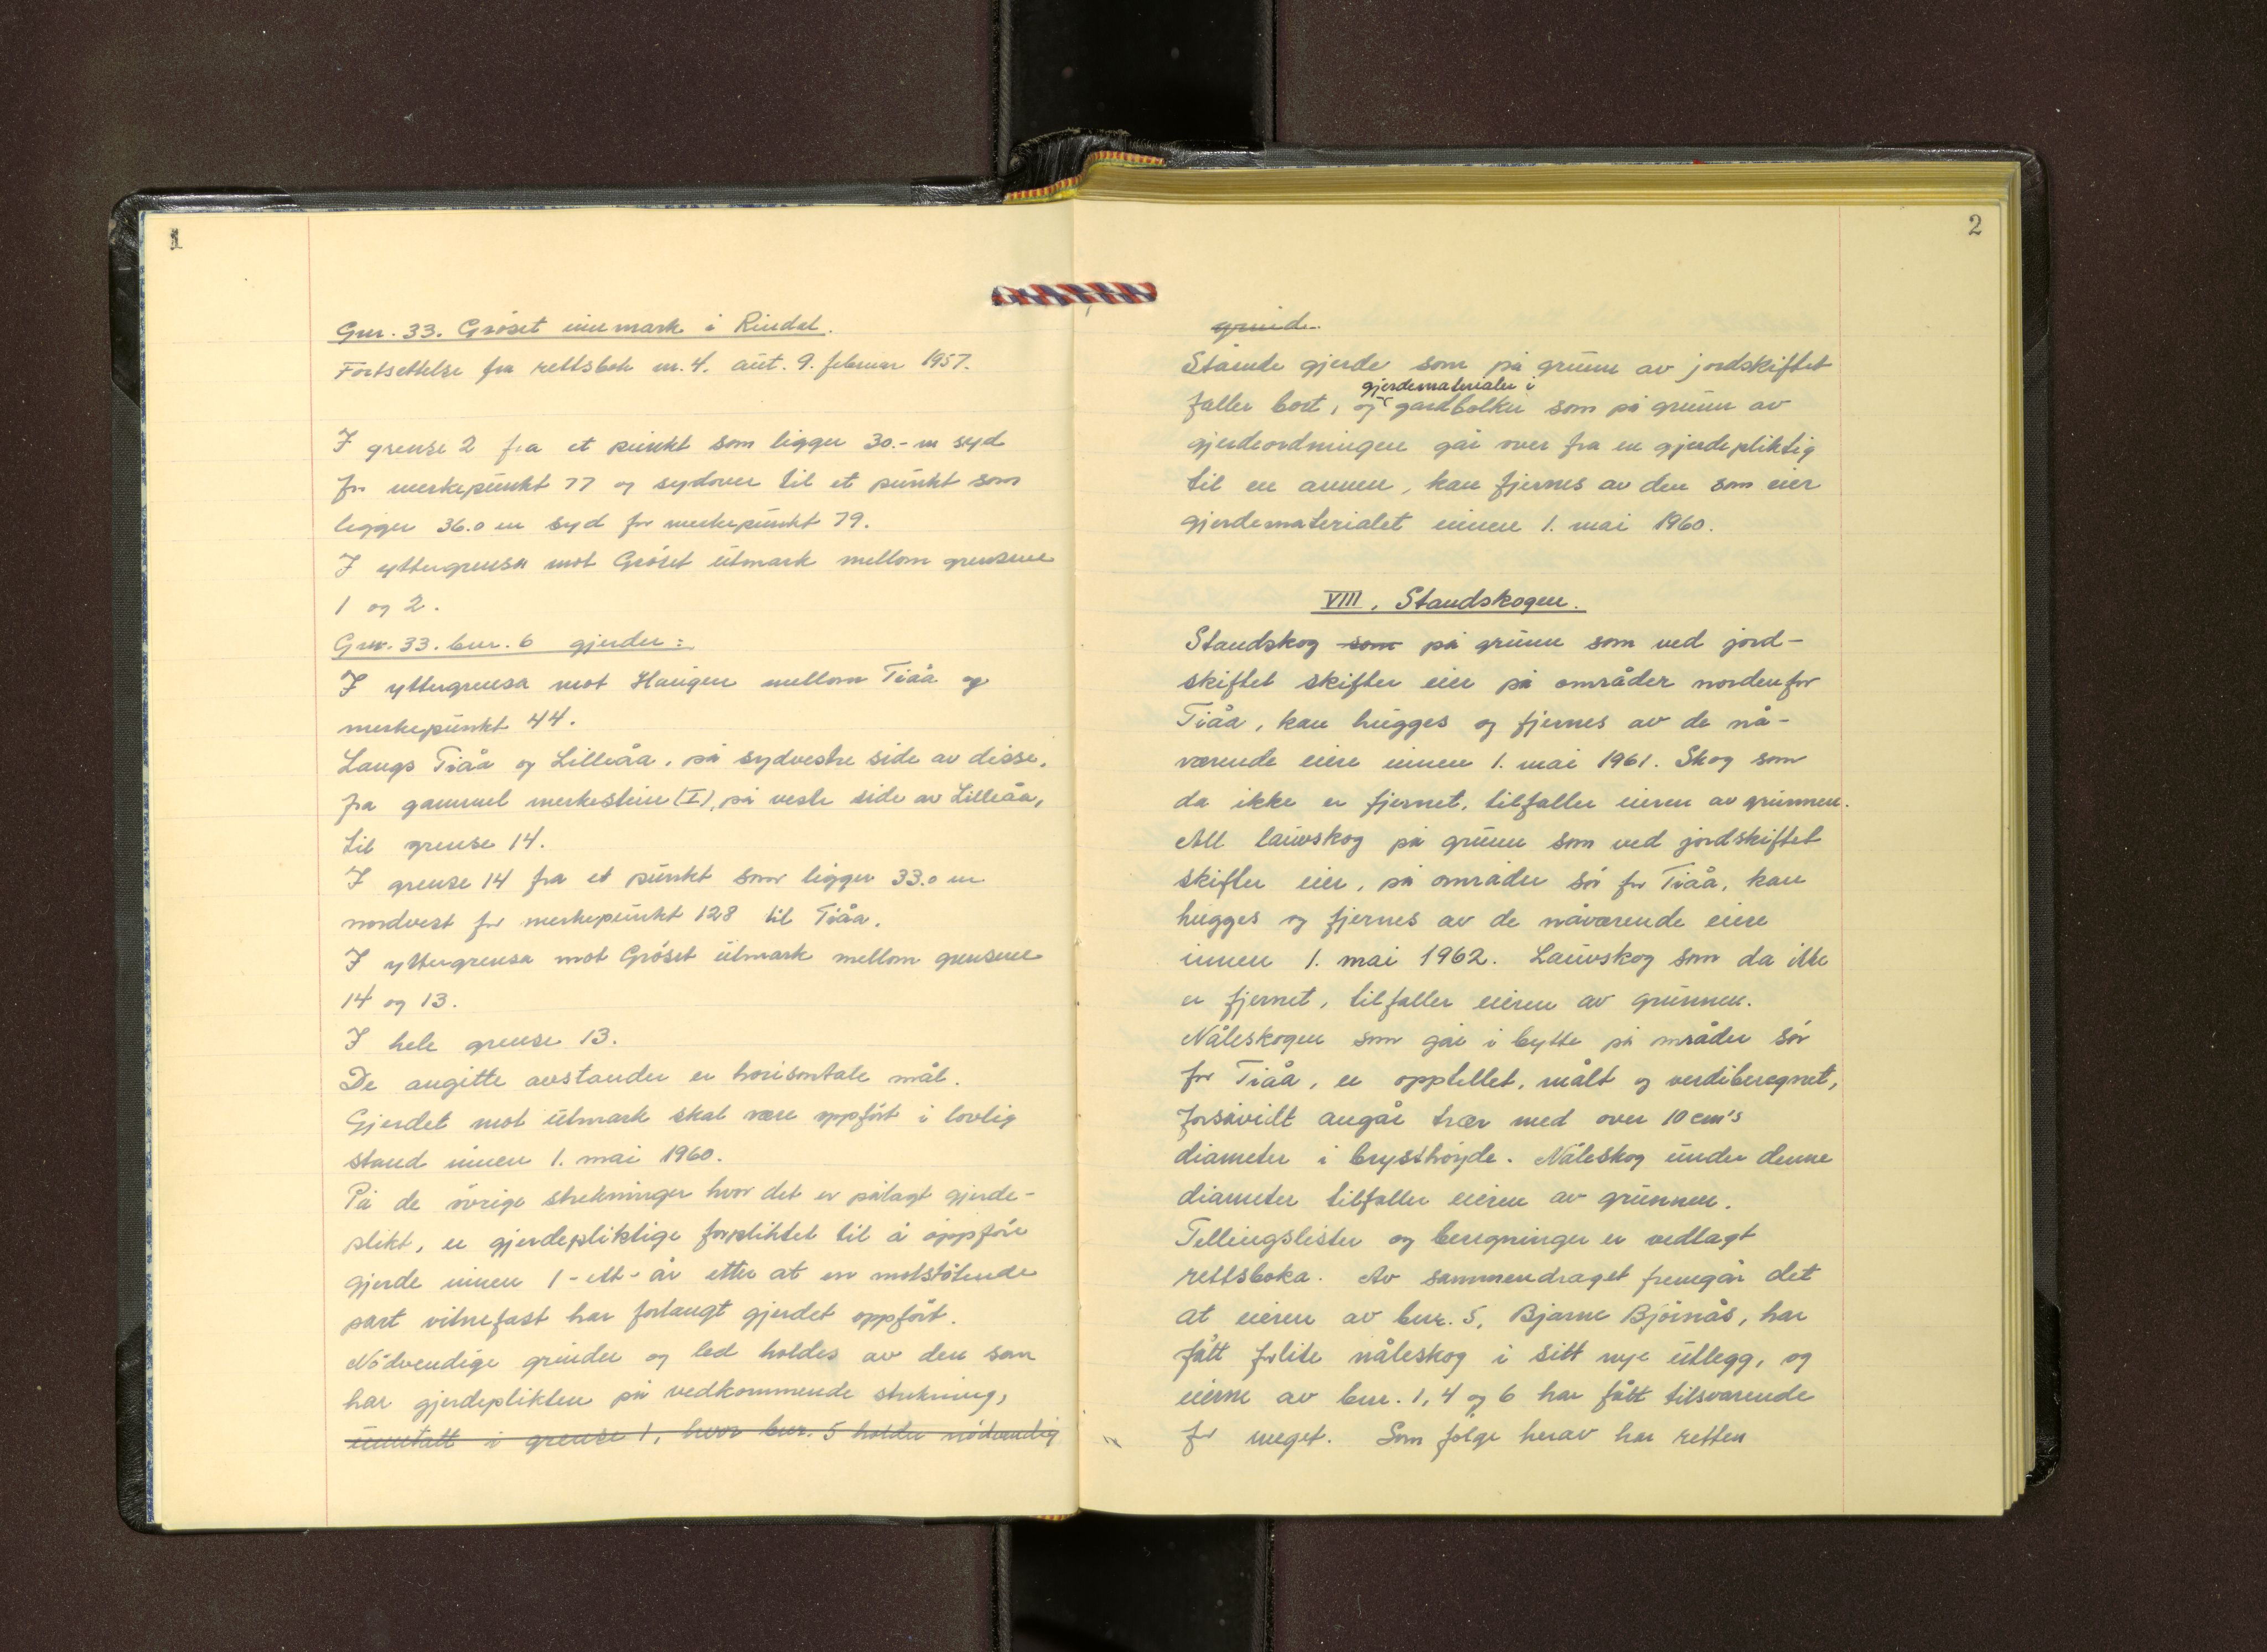 1
Gnr. 33. Gröset innmark i Rindal.
Fortsettelse fra rettsbok nr. 4. aut. 9. februar 1957.
I grense 2 fra et punkt som ligger 30.- m syd
for merkepunkt 77 og sydover til et punkt som
ligger 36.0 m syd for merkepunkt 79.
I yttergrensa mot Gröset utmark mellom grensene
1 og 2.
Gnr. 33. bnr. 6 gjerder:
I yttergrensa mot Haugen mellom Tiåa og
merkepunkt 44.
Langs Tiåa og Lilleåa, på sydvestre side av disse,
fra gammel merkestein (I), på vestre side av Lilleåa,
til grense 14.
I grense 14 fra et punkt som ligger 33.0 m
nordvest for merkepunkt 128 til Tiåa.
I yttergrensa mot Gröset utmark mellom grensene
14 og 13.
I hele grense 13.
De angitte avstander er horisontale mål.
Gjerdet mot utmark skal være oppfört i lovlig
stand innen 1. mai 1960.
På de övrige strekninger hvor det er pålagt gjerde-
plikt, er gjerdepliktige forpliktet til å oppföre
gjerde innen 1 - ett - år etter at en motstötende
part vitnefast har forlangt gjerdet oppfört.
Nödvendige grinder og led holdes av den som
har gjerdeplikten på vedkommende strekning,
unntatt i grense 1, hvor bnr. 5 holder nödvendig
2
grind.
Stående gjerde som på grunn av jordskiftet
gjerdematerialer i
faller bort, og gardbolker som på grunn av
gjerdeordningen går over fra en gjerdepliktig
til en annen, kan fjernes av den som eier
gjerdematerialet innen 1. mai 1960.
VIII. Standskogen.
Standskog som på grunn som ved jord-
skiftet skifter eier på områder nordenfor
Tiåa, kan hugges og fjernes av de nå-
værende eiere innen 1. mai 1961. Skog som
da ikke er fjernet, tilfaller eieren av grunnen.
All lauvskog på grunn som ved jordskiftet
skifter eier, på områder sör for Tiåa, kan
hugges og fjernes av de nåværende eiere
innen 1. mai 1962. Lauvskog som da ikke
er fjernet, tilfaller eieren av grunnen.
Nåleskogen som går i bytte på områder sör
for Tiåa, er opptellet, målt og verdiberegnet,
forsåvidt angår trær med over 10 cm's
diameter i brysthöyde. Nåleskog under denne
diameter tilfaller eieren av grunnen.
Tellingslister og beregninger er vedlagt
rettsboka. Av sammendraget fremgår det
at eieren av bnr. 5, Bjarne Björnås, har
fått forlite nåleskog i sitt nye utlegg, og
eierne av bnr. 1, 4 og 6 har fått tilsvarende
for meget. Som fölge herav har retten